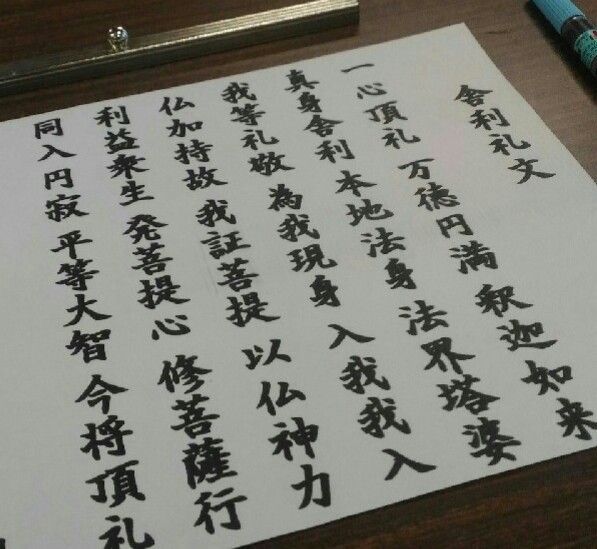 舎利礼文
一心頂礼 万徳円満 釈迦如来
真身舎利 本地法身 法界塔婆
我等礼敬 為我現身 入我我入
仏加持故 我証菩提 以仏神力
利益衆生 発菩提心 修菩薩行
同入円寂 平等大智 今将頂礼